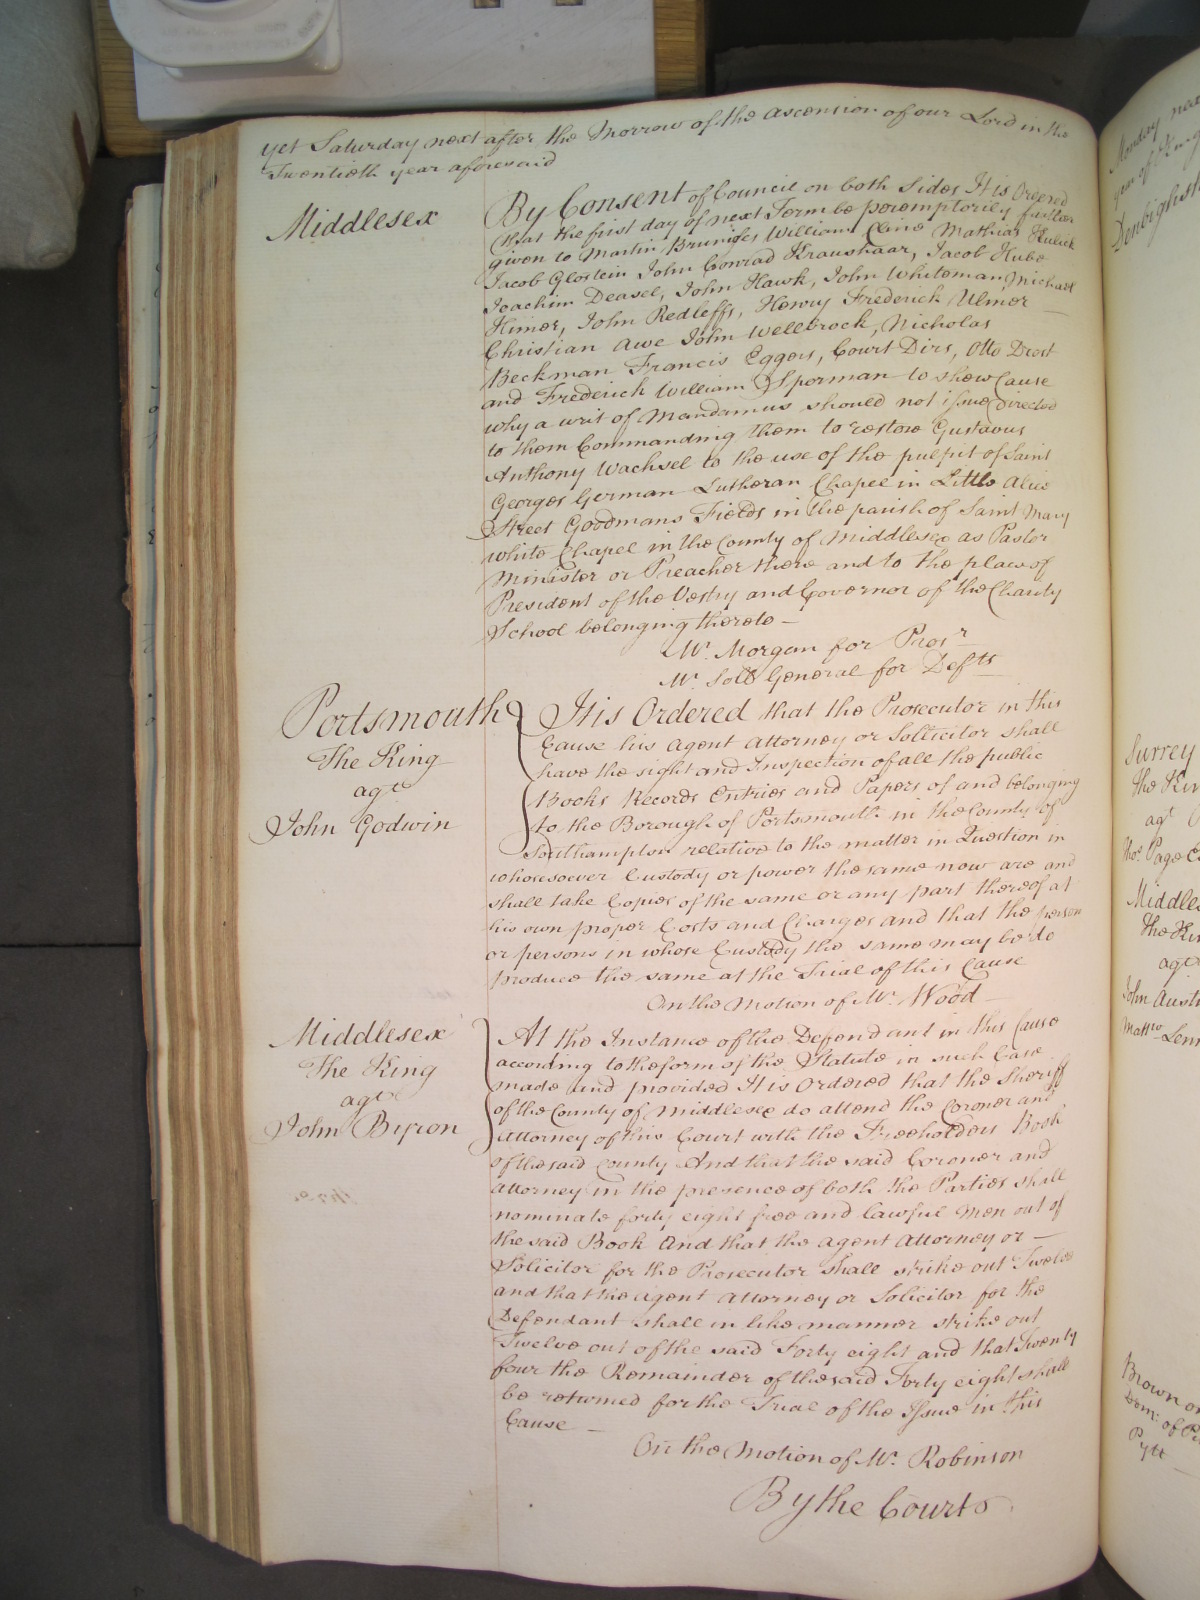 yet Saturday next after the Morrow of the Ascension of our Lord in the
Twentieth year aforesaid
Middlesex
By Consent of Council on both Sides It is Ordered
that the first day of next Term be peremptorily further
given to Martin Bruniges William Cline Mathias
Jacob Glostein John Conrad Kraushaar, Jacob Hube
Joachim Deasel, John Hawk, John Whiteman, Michael
Himer, John Redleffs, Henry Frederick Ulmer
Christian Awe John Wellbrock, Nicholas
Beckman Francis Eggers, Court Dirs, Otto Drost
and Frederick William Sporman to shew Cause
why a writ of Mandamus should not issue directed
to them Commanding them to restore Gustavus
Anthony Wachsel to the use of the pulpit of Saint
Georges German Lutheran Chapel in Little Alie
Street Goodmans Fields in the parish of Saint Mary
White Chapel in the County of Middlesex as Pastor
Minister or Preacher there and to the place of
President of the Vestry and Governor of the Charity
School belonging thereto —
Mr. Morgan for Prosr
Mr. Solr General for Defts
Portsmouth
The King
agt
John Godwin
It is Ordered that the Prosecutor in this
Cause his Agent Attorney or Sollicitor shall
have the sight and Inspection of all the public
Books Records Entries and Papers of and belonging
to the Borough of Portsmouth in the County of
Southampton relative to the matter in Question in
whosesoever Custody or power the same now are and
shall take Copies of the same or any part thereof at
his own proper Costs and Charges and that the person
or persons in whose Custody the same may be do
produce the same at the Trial of this Cause
On the Motion of Mr. Wood —
Middlesex
The King
agt
John Byron
At the Instance of the Defendant in this Cause
according to the form of the Statute in such Case
made and provided It is Ordered that the Sheriff
of the County of Middlesex do attend the Coroner and
Attorney of this Court with the Freeholders Book
of the said County And that the said Coroner and
Attorney in the presence of both the Parties shall
nominate forty eight free and lawful Men out of
the said Book And that the Agent Attorney or —
Solicitor for the Prosecutor shall strike out Twelve
and that the Agent Attorney or Solicitor for the
Defendant shall in like manner strike out
Twelve out of the said Forty eight and that Twenty
four the Remainder of the said Forty eight shall
be returned for the Trial of the Issue in this
Cause —
On the Motion of Mr. Robinson
By the Court
Monday next
Denbighsh
Surrey
the Kin
agt
Thos. Page
Middles
the Kin
agt
John Austi
Mattw. Lenn
Brown on
Dem: of
Pytt